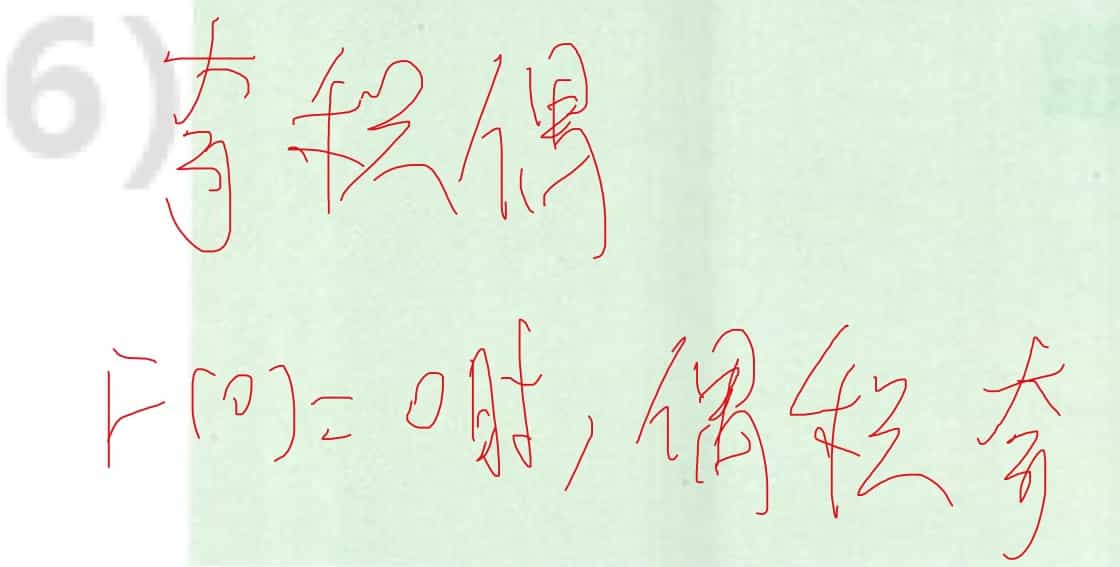 6) 奇积偶
F(0)=0时,偶积奇